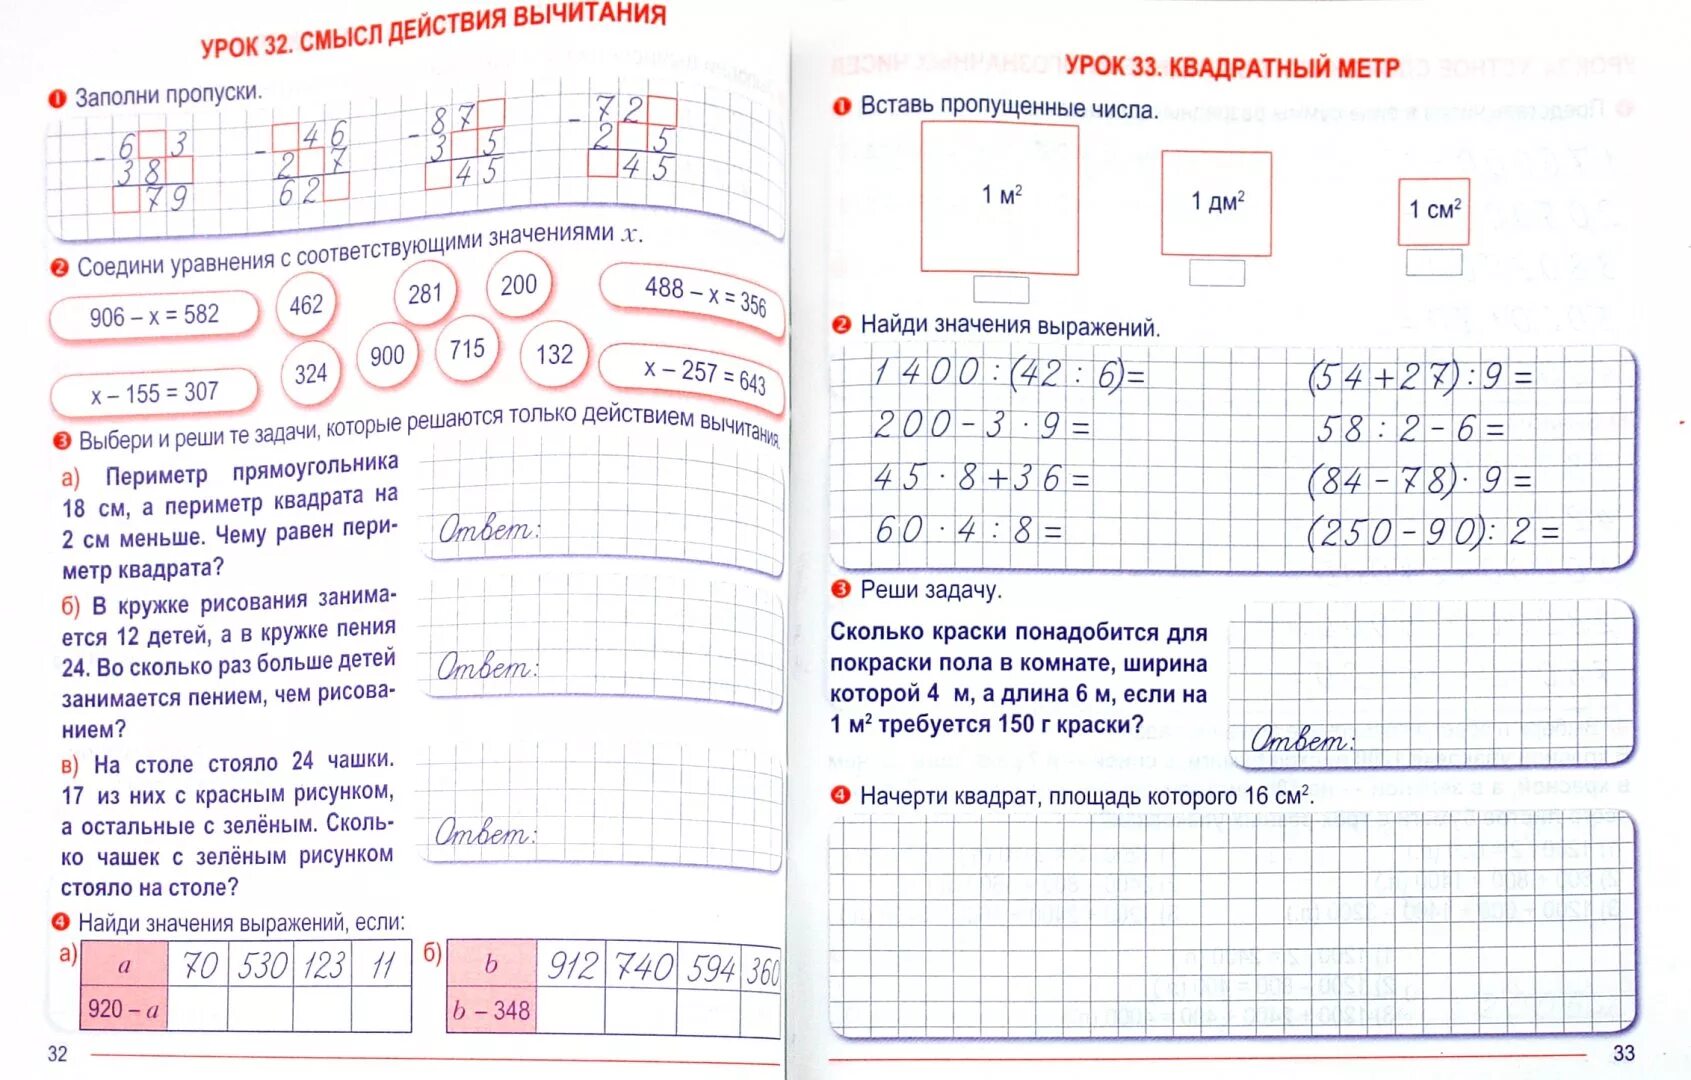 УРОК 32. СМЫСЛ ДЕЙСТВИЯ ВЫЧИТАНИЯ
1 Заполни пропуски.
- 6 3
3 8
7 9
- 4 6
2 7
6 2
- 8 7
3 5
4 5
- 7 2
2 5
4 5
2 Соедини уравнения с соответствующими значениями x.
906 – x = 582
462
281
200
488 – x = 356
x – 155 = 307
324
900
715
132
x – 257 = 643
3 Выбери и реши те задачи, которые решаются только действием вычитания.
а) Периметр прямоугольника
18 см, а периметр квадрата на
2 см меньше. Чему равен пери-
метр квадрата?
Ответ:
б) В кружке рисования занима-
ется 12 детей, а в кружке пения
24. Во сколько раз больше детей
занимается пением, чем рисова-
нием?
Ответ:
в) На столе стояло 24 чашки.
17 из них с красным рисунком,
а остальные с зелёным. Сколь-
ко чашек с зелёным рисунком
стояло на столе?
Ответ:
4 Найди значения выражений, если:
а) a 70 530 123 11
920 – a
б) b 912 740 594 360
b – 348
32
УРОК 33. КВАДРАТНЫЙ МЕТР
1 Вставь пропущенные числа.
1 м²
1 дм²
1 см²
2 Найди значения выражений.
1400 : (42 : 6)=
(54 + 27) : 9 =
200 – 3 · 9 =
58 : 2 – 6 =
45 · 8 + 36 =
(84 – 78) · 9 =
60 · 4 : 8 =
(250 – 90) : 2 =
3 Реши задачу.
Сколько краски понадобится для
покраски пола в комнате, ширина
которой 4 м, а длина 6 м, если на
1 м² требуется 150 г краски?
Ответ:
4 Начерти квадрат, площадь которого 16 см².
33